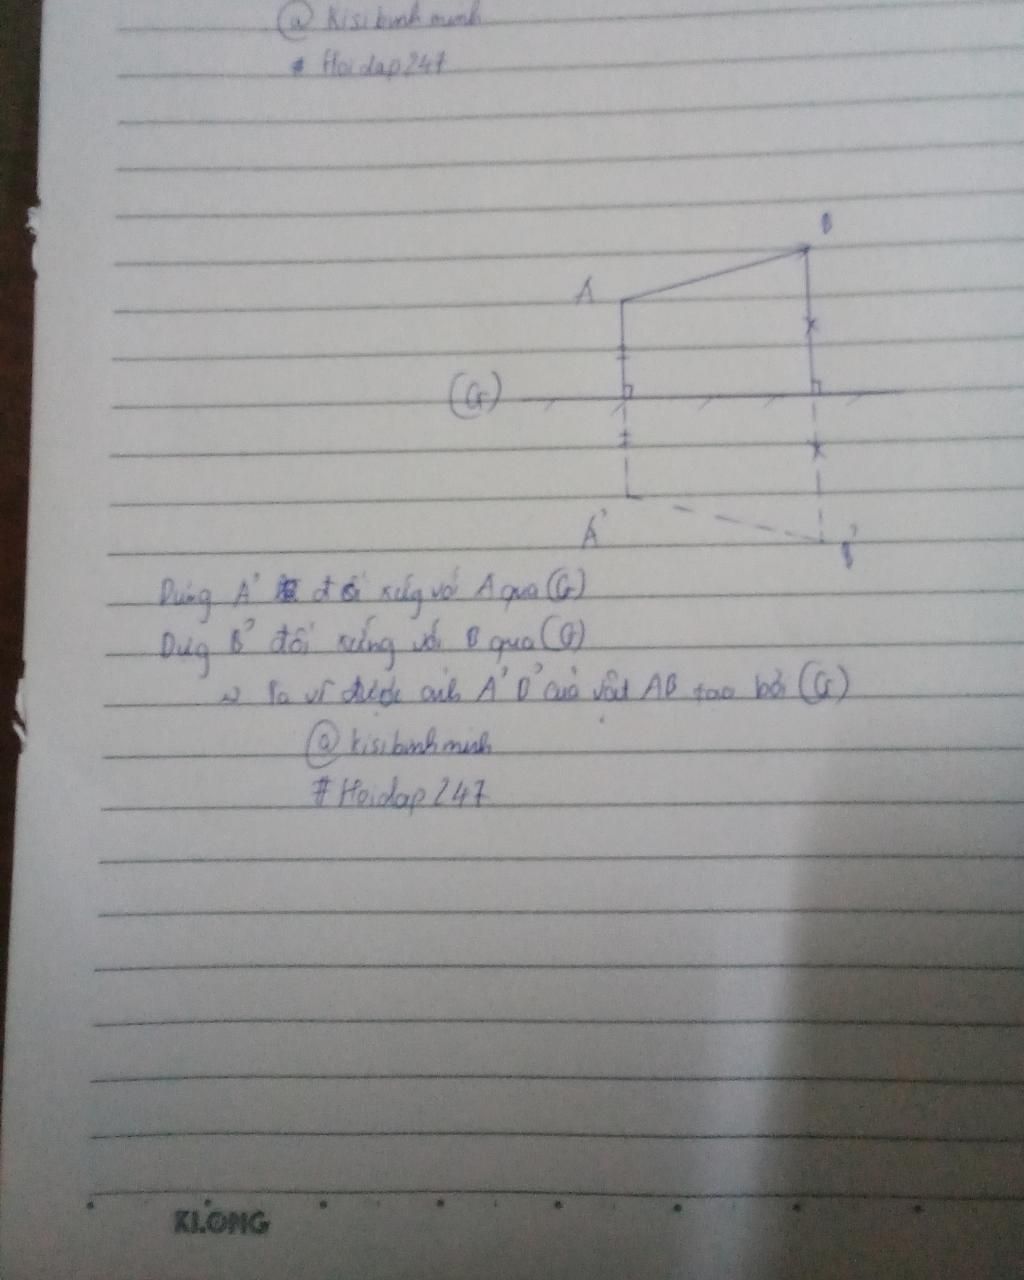 @ kisibinhminh
# Hoidap247
B
A
(G)
A'
B'
Dựng A' đối xứng với A qua (G)
Dựg B' đối xứng với B qua (G)
→ Ta vẽ được ảnh A'B' của vật AB tạo bởi (G)
@ kisibinhminh
# Hoidap247
KLONG